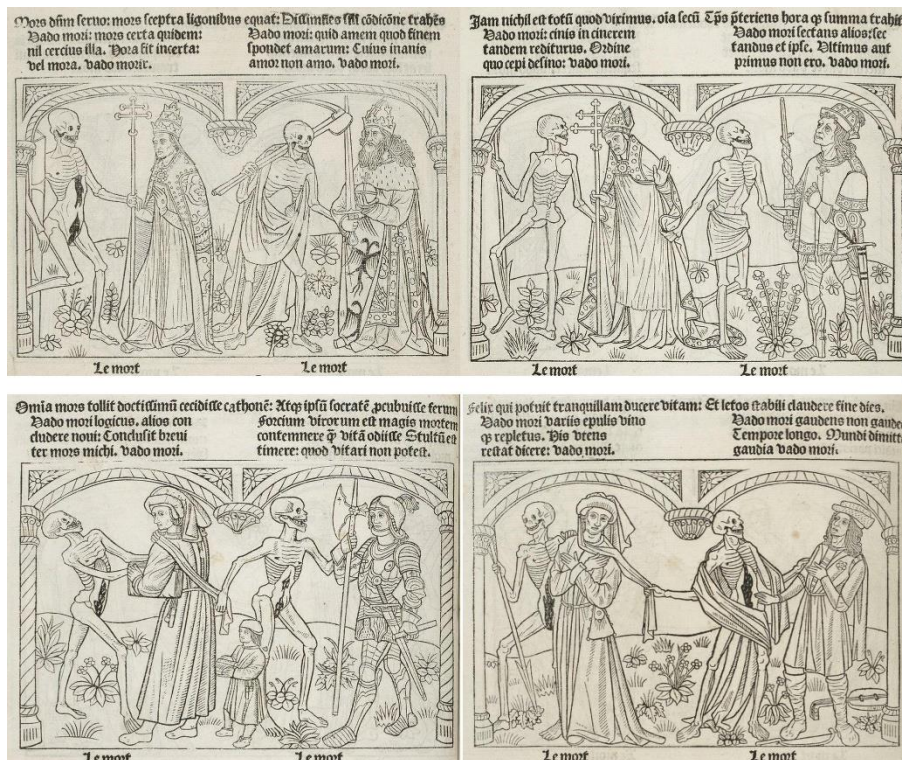 Mors dñm seruo: mors sceptra ligonibus equat: Dissimiles sili cõdicõne trahẽs
Vado mori: mors certa quidem:
nil cercius illa. Hora sit incerta:
vel mora. vado morir.
Vado mori: quid amem quod finem
spondet amarum: Cuius inanis
amor non amo. vado mori.
Le mort
Le mort
Jam nichil est totũ quod viximus. oĩa secũ Tp̃s p̃teriens hora q̃ summa trahit
Vado mori: cinis in cinerem
tandem rediturus. Ordine
quo cepi desino: vado mori.
Vado mori sectans alios: sec
tandus et ipse. Vltimus aut
primus non ero. vado mori.
Le mort
Le mort
Omĩa mors tollit doctissimũ cecidisse cathonẽ: Atq̃ ipsũ socratẽ ꝓcubuisse ferunt
Vado mori logicus. alios con
cludere noui: Conclusit breui
ter mors michi. vado mori.
Forcium virorum est magis mortem
contemnere q̃ vitã odiisse Stultũ est
timere: quod vitari non potest.
Le mort
Le mort
Felix qui potuit tranquillam ducere vitam: Et letos stabili claudere fine dies.
Vado mori variis epulis vino
q̃ repletus. His vtens
restat dicere: vado mori.
Vado mori gaudens non gaude
Tempore longo. Mundi dimitt
gaudia vado mori.
Le mort
Le mort